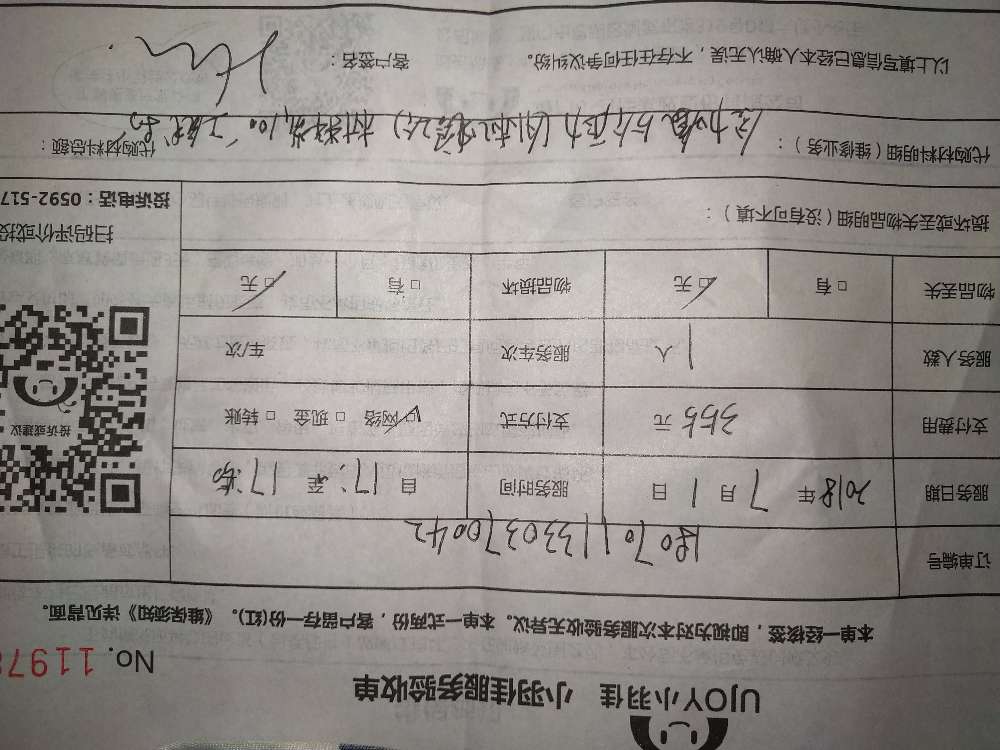 UJOY小羽佳 小羽佳服务验收单
No. 11978
本单一经核签，即视为对本次服务验收无异议。本单一式两份，客户留存一份(红)。《维保须知》详见背面。
订单编号 180701133037 0042
服务日期 2018年 7月 1日 服务时间 自 17: 至 17:50
支付费用 355元 支付方式 ☑网络 □现金 □转账
服务人数 1人 服务车次 车/次
物品丢失 □有 ☑无 物品损坏 □有 ☑无
损坏或丢失物品明细（没有可不填）：
扫码评价或投
投诉电话：0592-517
投诉或建议
代购材料明细（维修业务）： 代购材料总额：
以上填写信息已经本人确认无误，不存在任何争议纠纷。 客户签名：